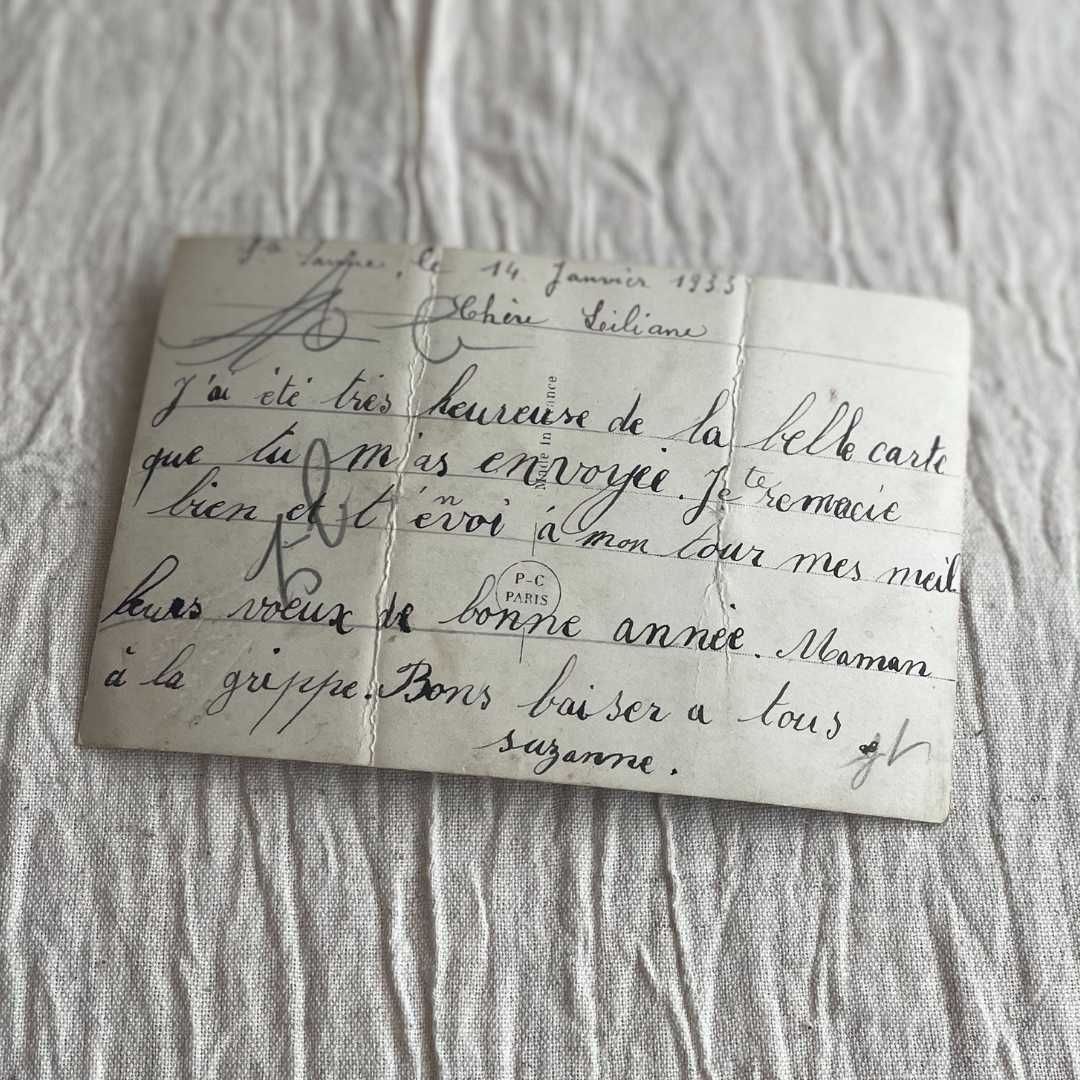 le 14 Janvier 1933
Chère Leiliane
J'ai été très heureuse de la belle carte
que tu m'as envoyée. Je te remacie
bien et t'envoi à mon tour mes meil
leurs voeux de bonne année. Maman
à la grippe. Bons baiser a tous
suzanne.
Made in France
P-C
PARIS